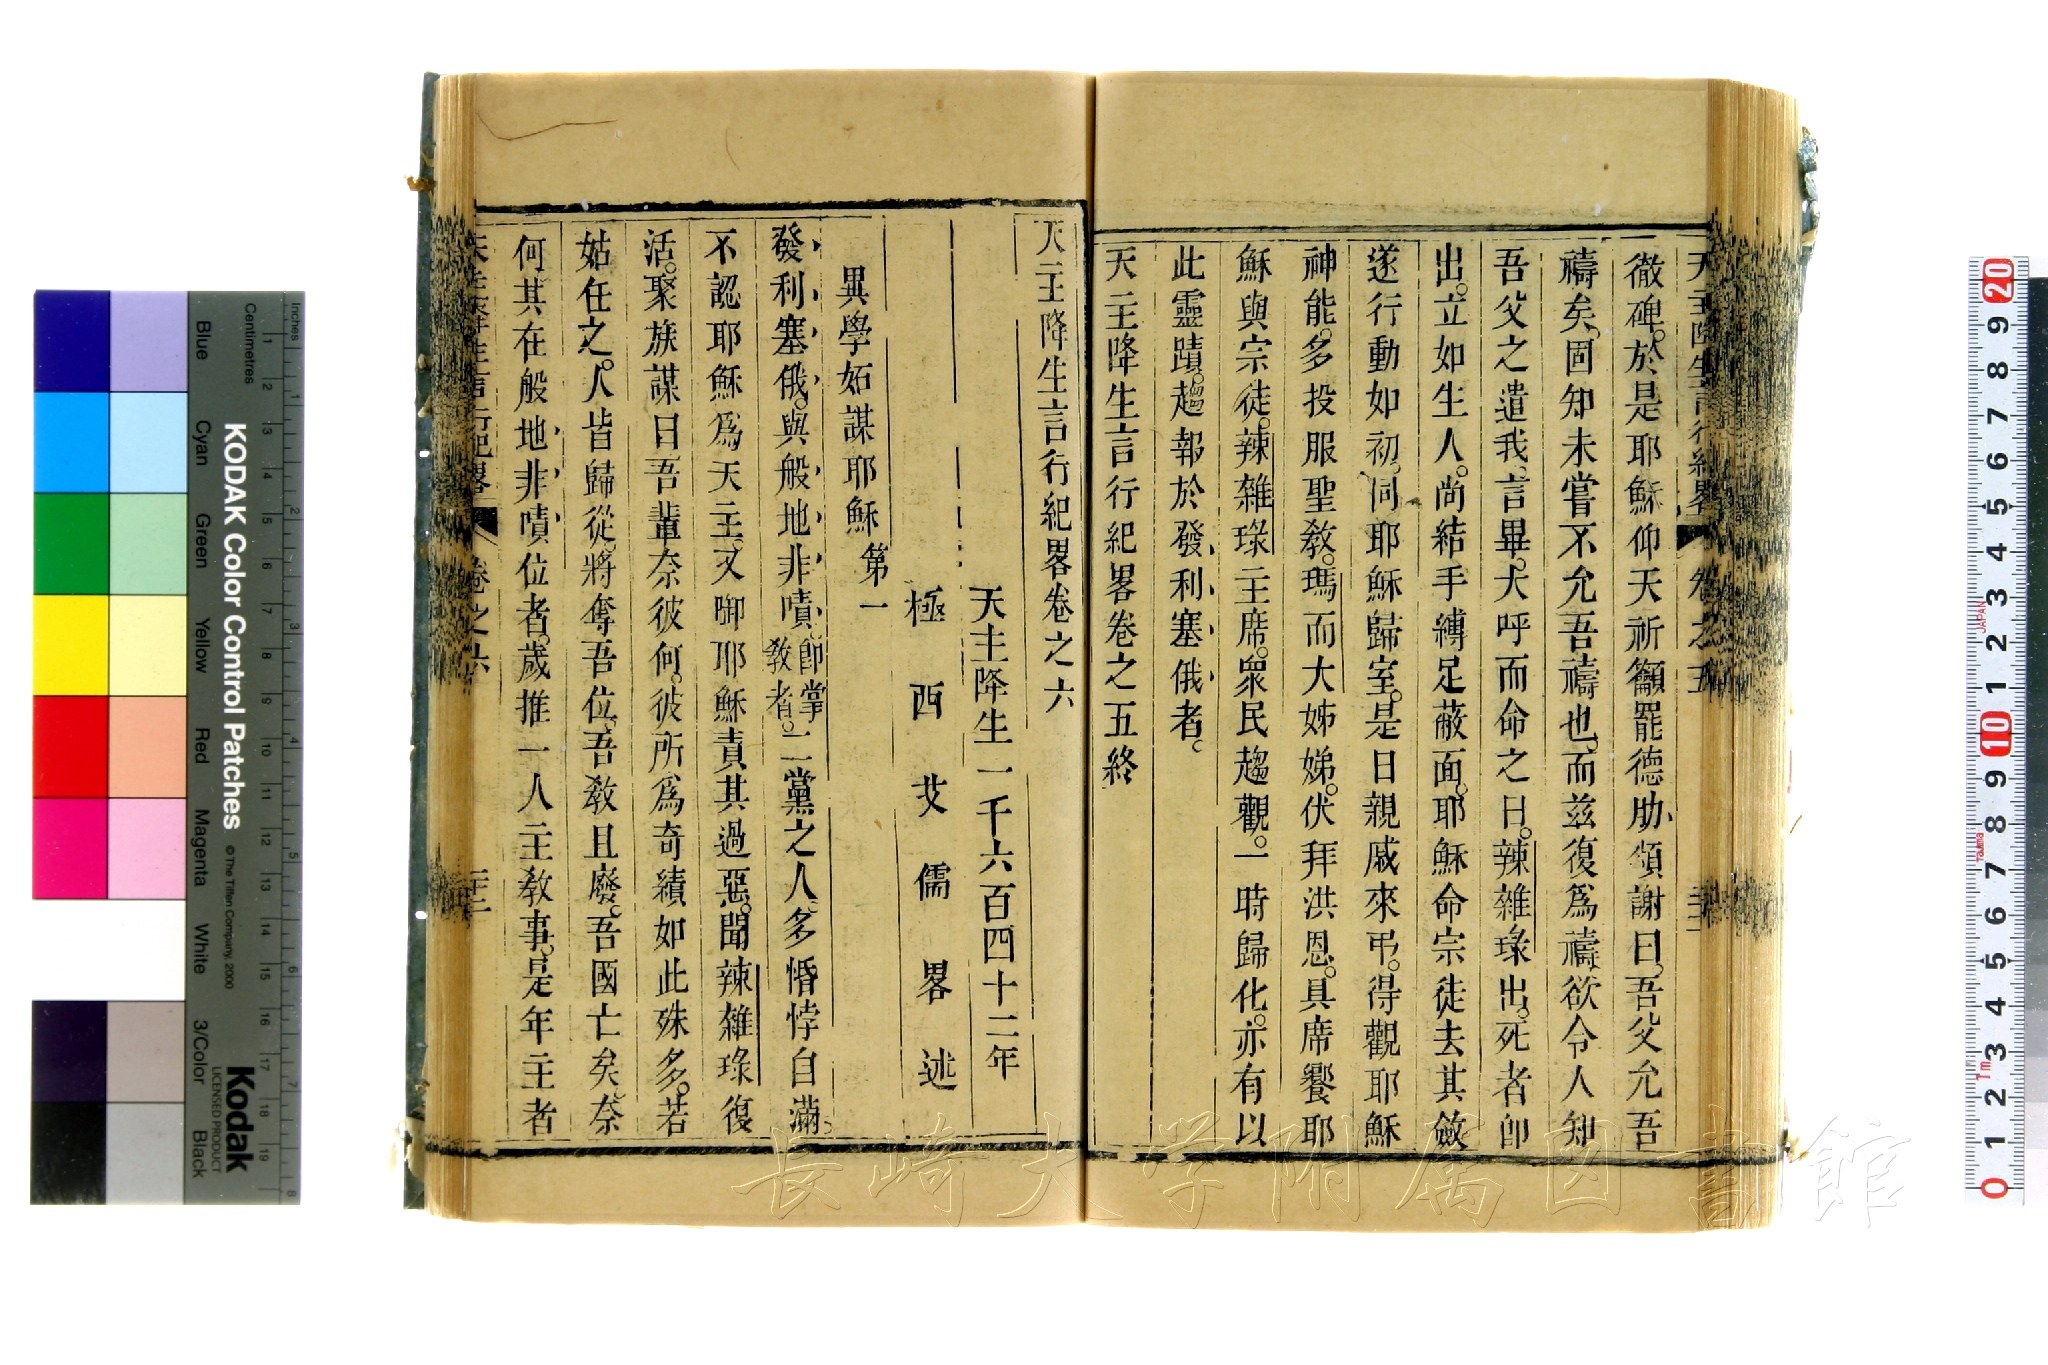 徹碑。於是耶穌仰天祈籲罷德肋頌謝曰。吾父允吾
禱矣。固知未嘗不允吾禱也。而茲復爲禱。欲令人知
吾父之遣我。言畢。大呼而命之曰。辣雜琭出。死者卽
出。立如生人。尚結手縛足蔽面。耶穌命宗徒去其斂
遂行動如初。同耶穌歸室。是日親戚來弔。得觀耶穌
神能。多投服聖教。瑪而大姊娣。伏拜洪恩。具席饗耶
穌與宗徒。辣雜琭主席。衆民趨觀。一時歸化。亦有以
此靈蹟。趨報於發利塞俄者。
天主降生言行紀畧卷之五終
天主降生言行紀畧卷之六
天主降生一千六百四十二年
極西艾儒畧述
異學妬謀耶穌 第一
發利塞俄。與般地非嘖卽掌教者。二黨之人多惛悖自滿。
不認耶穌爲天主。又啣耶穌責其過惡。聞辣雜琭復
活。聚族謀曰吾輩奈彼何。彼所爲奇績如此殊多。若
姑任之。人皆歸從。將奪吾位。吾教且廢。吾國亡矣。奈
何其在般地非嘖位者。歲推一人主教事。是年主者
天主降生言行紀畧 卷之六
長崎大学附属図書館
KODAK Color Control Patches
© The Tiffen Company, 2000
Kodak
LICENSED PRODUCT
Inches
Centimetres
Blue
Cyan
Green
Yellow
Red
Magenta
White
3/Color
Black
JAPAN